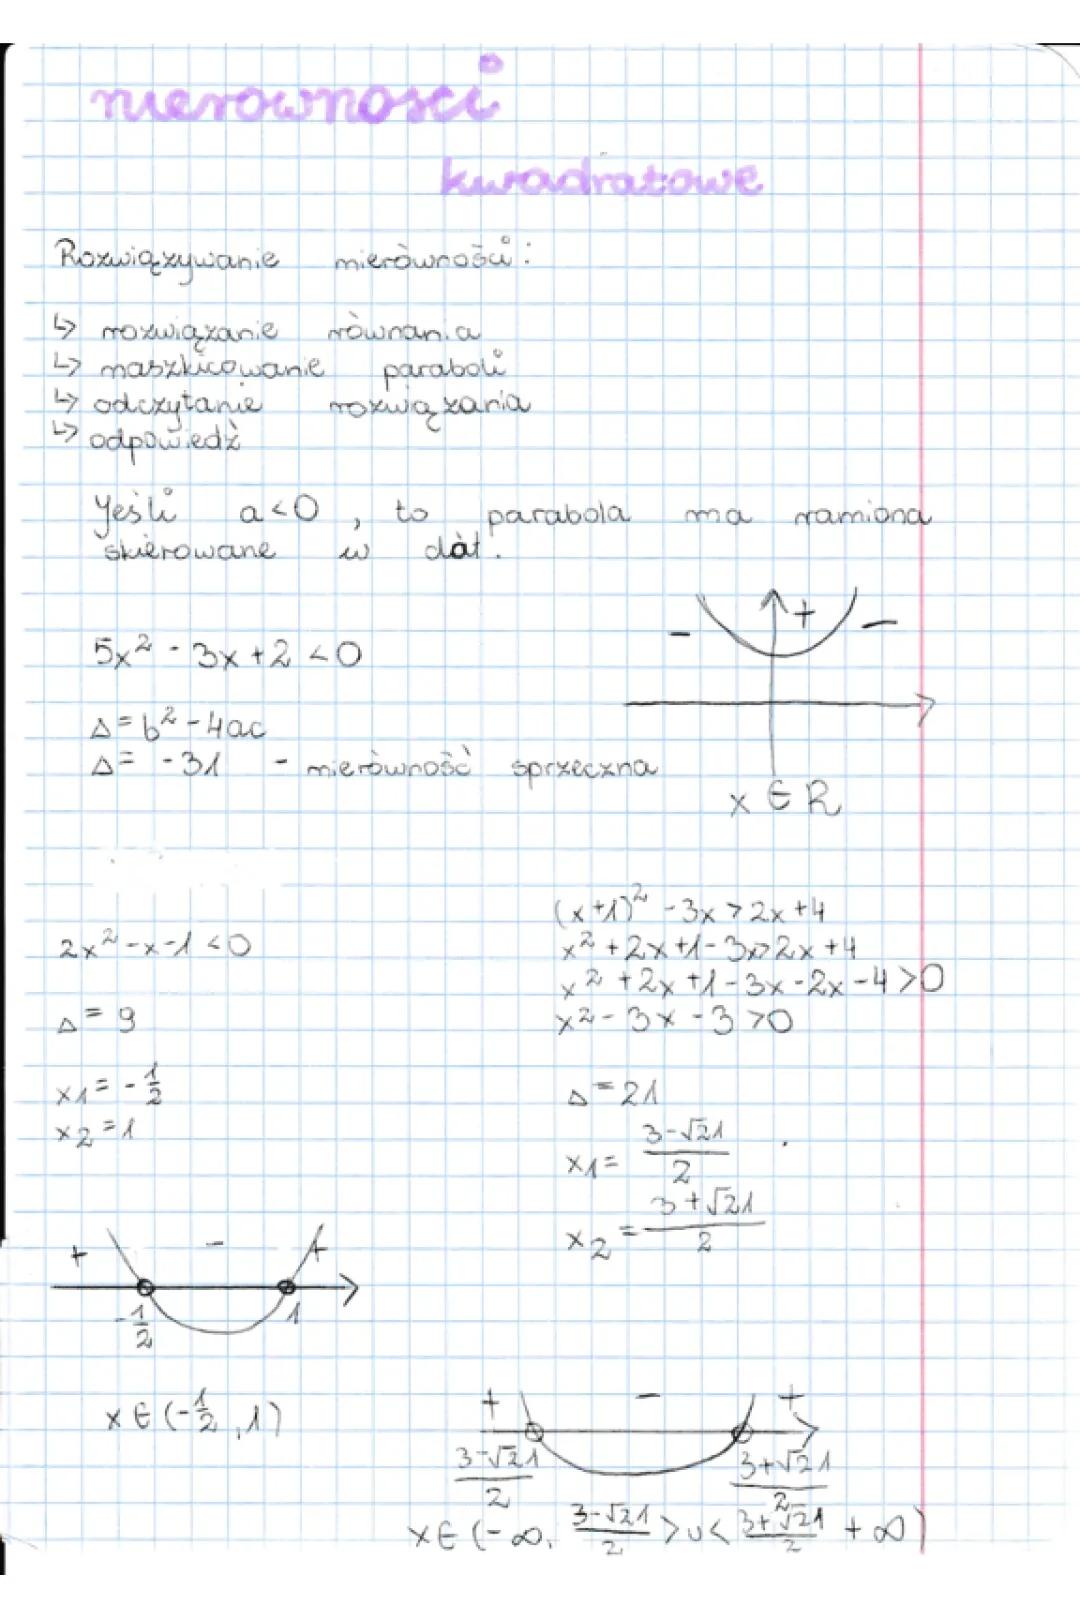 nierówności
kwadratowe
Rozwiązywanie nierówności:
↳ rozwiązanie równania
↳ naszkicowanie paraboli
↳ odczytanie rozwiązania
↳ odpowiedź
Jeśli a<0, to parabola ma ramiona
skierowane w dół.
- + -
5x² - 3x + 2 < 0
Δ = b² - 4ac
Δ = -31 - nierówność sprzeczna
x ∈ R
2x² - x - 1 < 0
Δ = 9
x1 = -1/2
x2 = 1
+ - +
-1/2 1
x ∈ (-1/2, 1)
(x+1)² - 3x > 2x + 4
x² + 2x + 1 - 3x > 2x + 4
x² + 2x + 1 - 3x - 2x - 4 > 0
x² - 3x - 3 > 0
Δ = 21
x1 = (3-√21)/2
x2 = (3+√21)/2
+ - +
(3-√21)/2 (3+√21)/2
x ∈ (-∞, (3-√21)/2 > ∪ < (3+√21)/2 +∞)